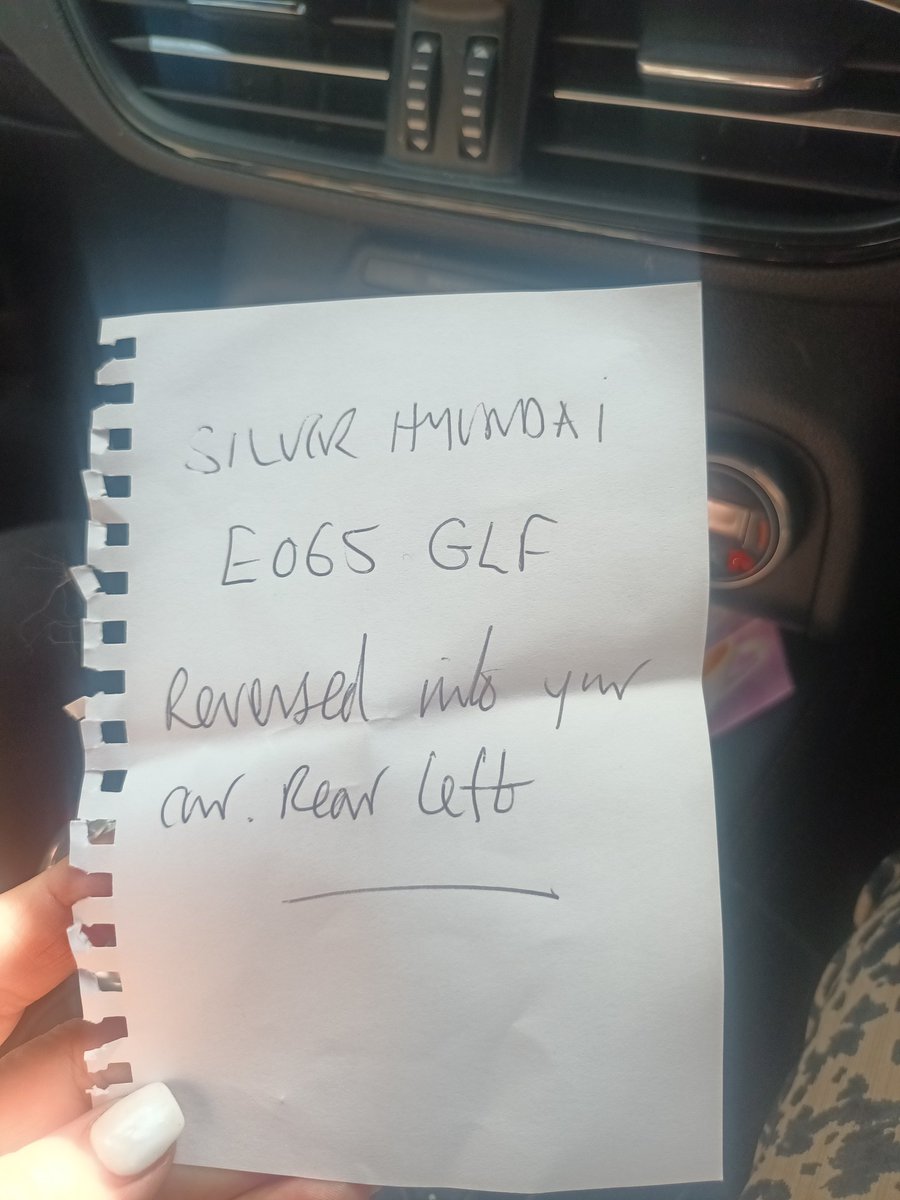 SILVER HYUNDAI
EO65 GLF
Reversed into your
car. Rear left